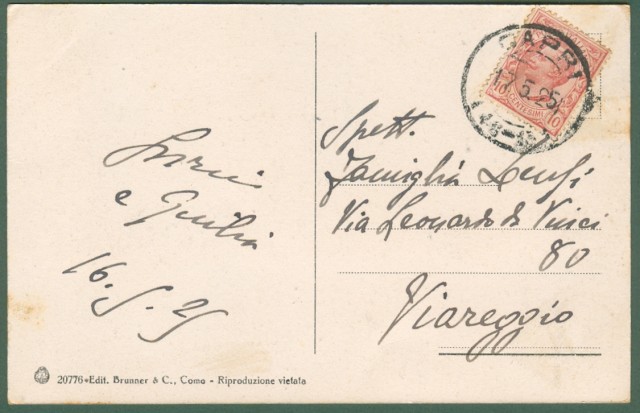 e Giulia
16.5.25
20776 • Edit. Brunner & C., Como - Riproduzione vietata
CAPRI
17.5.25
10 CENTESIMI 10
Spett.
Famiglia
Via Leonardo da Vinci
80
Viareggio